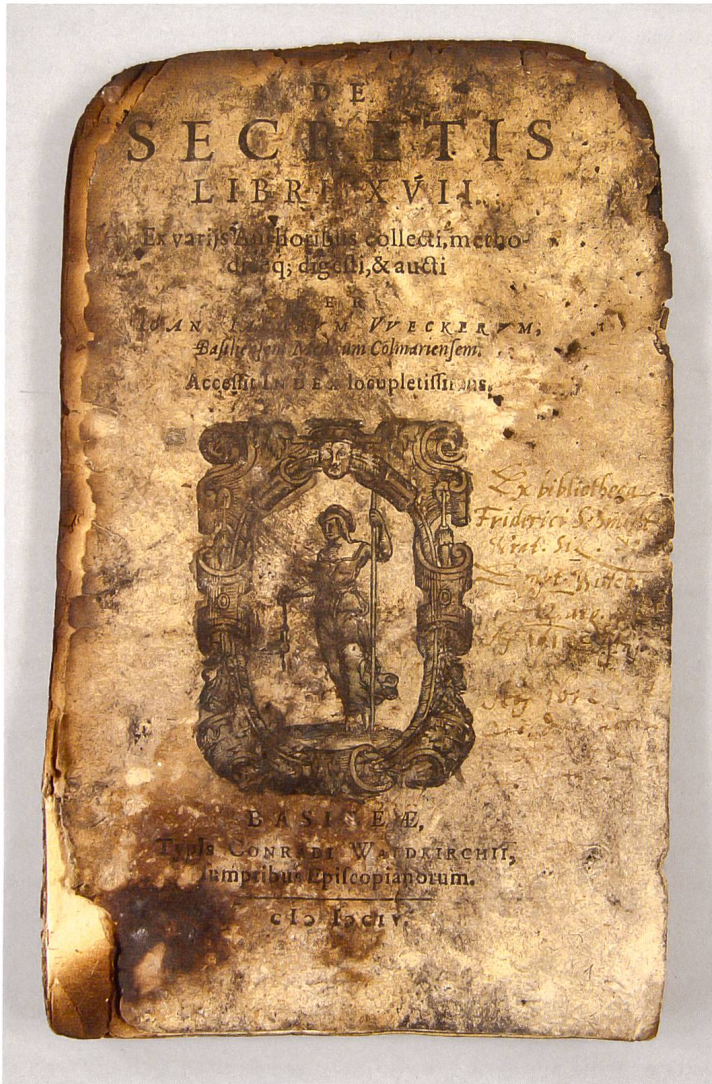 DE
SECRETIS
LIBRI XVII.
Ex varijs Authoribus collecti, metho-
dicéq; digesti, & aucti
PER
IOAN. IACOBVM VVECKERVM,
Basiliensem Medicum Colmariensem.
Accessit INDEX locupletissimus.
Ex bibliotheca
Friderici
BASILEÆ,
Typis CONRADI WALDKIRCHII,
sumptibus Episcopianorum.
cIↄ Iↄ CIV.